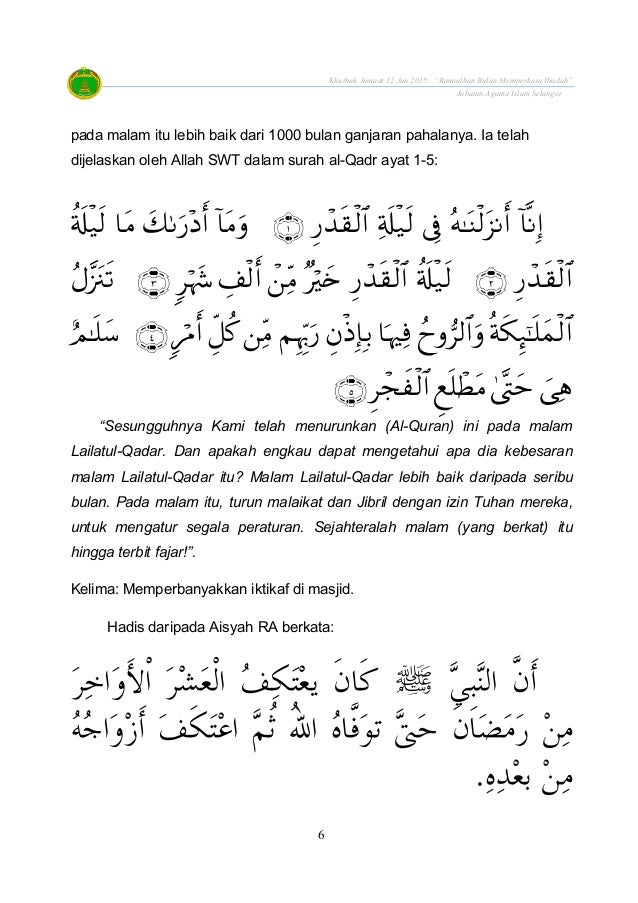 Khutbah Jumaat 12 Jun 2015: "Ramadhan Bulan Memperkasa Ibadah"
Jabatan Agama Islam Selangor
pada malam itu lebih baik dari 1000 bulan ganjaran pahalanya. Ia telah
dijelaskan oleh Allah SWT dalam surah al-Qadr ayat 1-5:
إِنَّآ أَنزَلْنَٰهُ فِى لَيْلَةِ ٱلْقَدْرِ ١ وَمَآ أَدْرَىٰكَ مَا لَيْلَةُ
ٱلْقَدْرِ ٢ لَيْلَةُ ٱلْقَدْرِ خَيْرٌ مِّنْ أَلْفِ شَهْرٍ ٣ تَنَزَّلُ
ٱلْمَلَٰٓئِكَةُ وَٱلرُّوحُ فِيهَا بِإِذْنِ رَبِّهِم مِّن كُلِّ أَمْرٍ ٤ سَلَٰمٌ
هِىَ حَتَّىٰ مَطْلَعِ ٱلْفَجْرِ ٥
“Sesungguhnya Kami telah menurunkan (Al-Quran) ini pada malam
Lailatul-Qadar. Dan apakah engkau dapat mengetahui apa dia kebesaran
malam Lailatul-Qadar itu? Malam Lailatul-Qadar lebih baik daripada seribu
bulan. Pada malam itu, turun malaikat dan Jibril dengan izin Tuhan mereka,
untuk mengatur segala peraturan. Sejahteralah malam (yang berkat) itu
hingga terbit fajar!”.
Kelima: Memperbanyakkan iktikaf di masjid.
Hadis daripada Aisyah RA berkata:
أَنَّ النَّبِيَّ ﷺ كَانَ يَعْتَكِفُ الْعَشْرَ الْأَوَاخِرَ
مِنْ رَمَضَانَ حَتَّى تَوَفَّاهُ اللهُ ثُمَّ اعْتَكَفَ أَزْوَاجُهُ
مِنْ بَعْدِهِ.
6